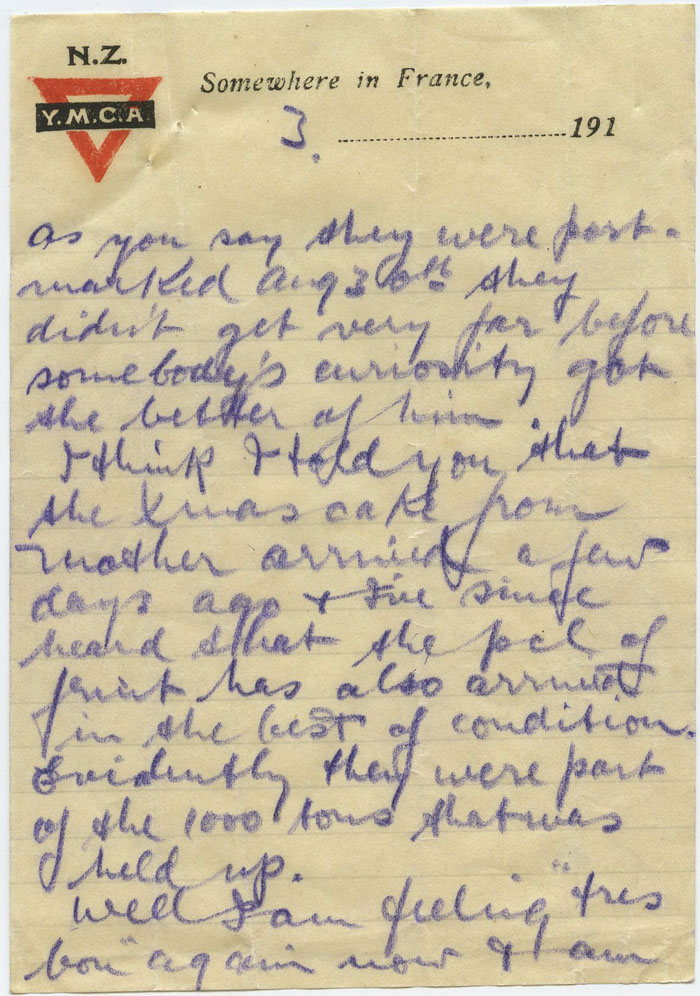 N.Z.
Y.M.C.A.
Somewhere in France,
3. ........................ 191
as you say they were post-
marked Aug 30th they
didn't get very far before
somebody's curiosity got
the better of him
I think I told you that
the Xmas cake from
Mother arrived a few
days ago & I've since
heard that the pcl of
fruit has also arrived
in the best of condition.
Evidently they were part
of the 1000 tons that was
held up.
Well I am feeling "tres
bon" again now & I am